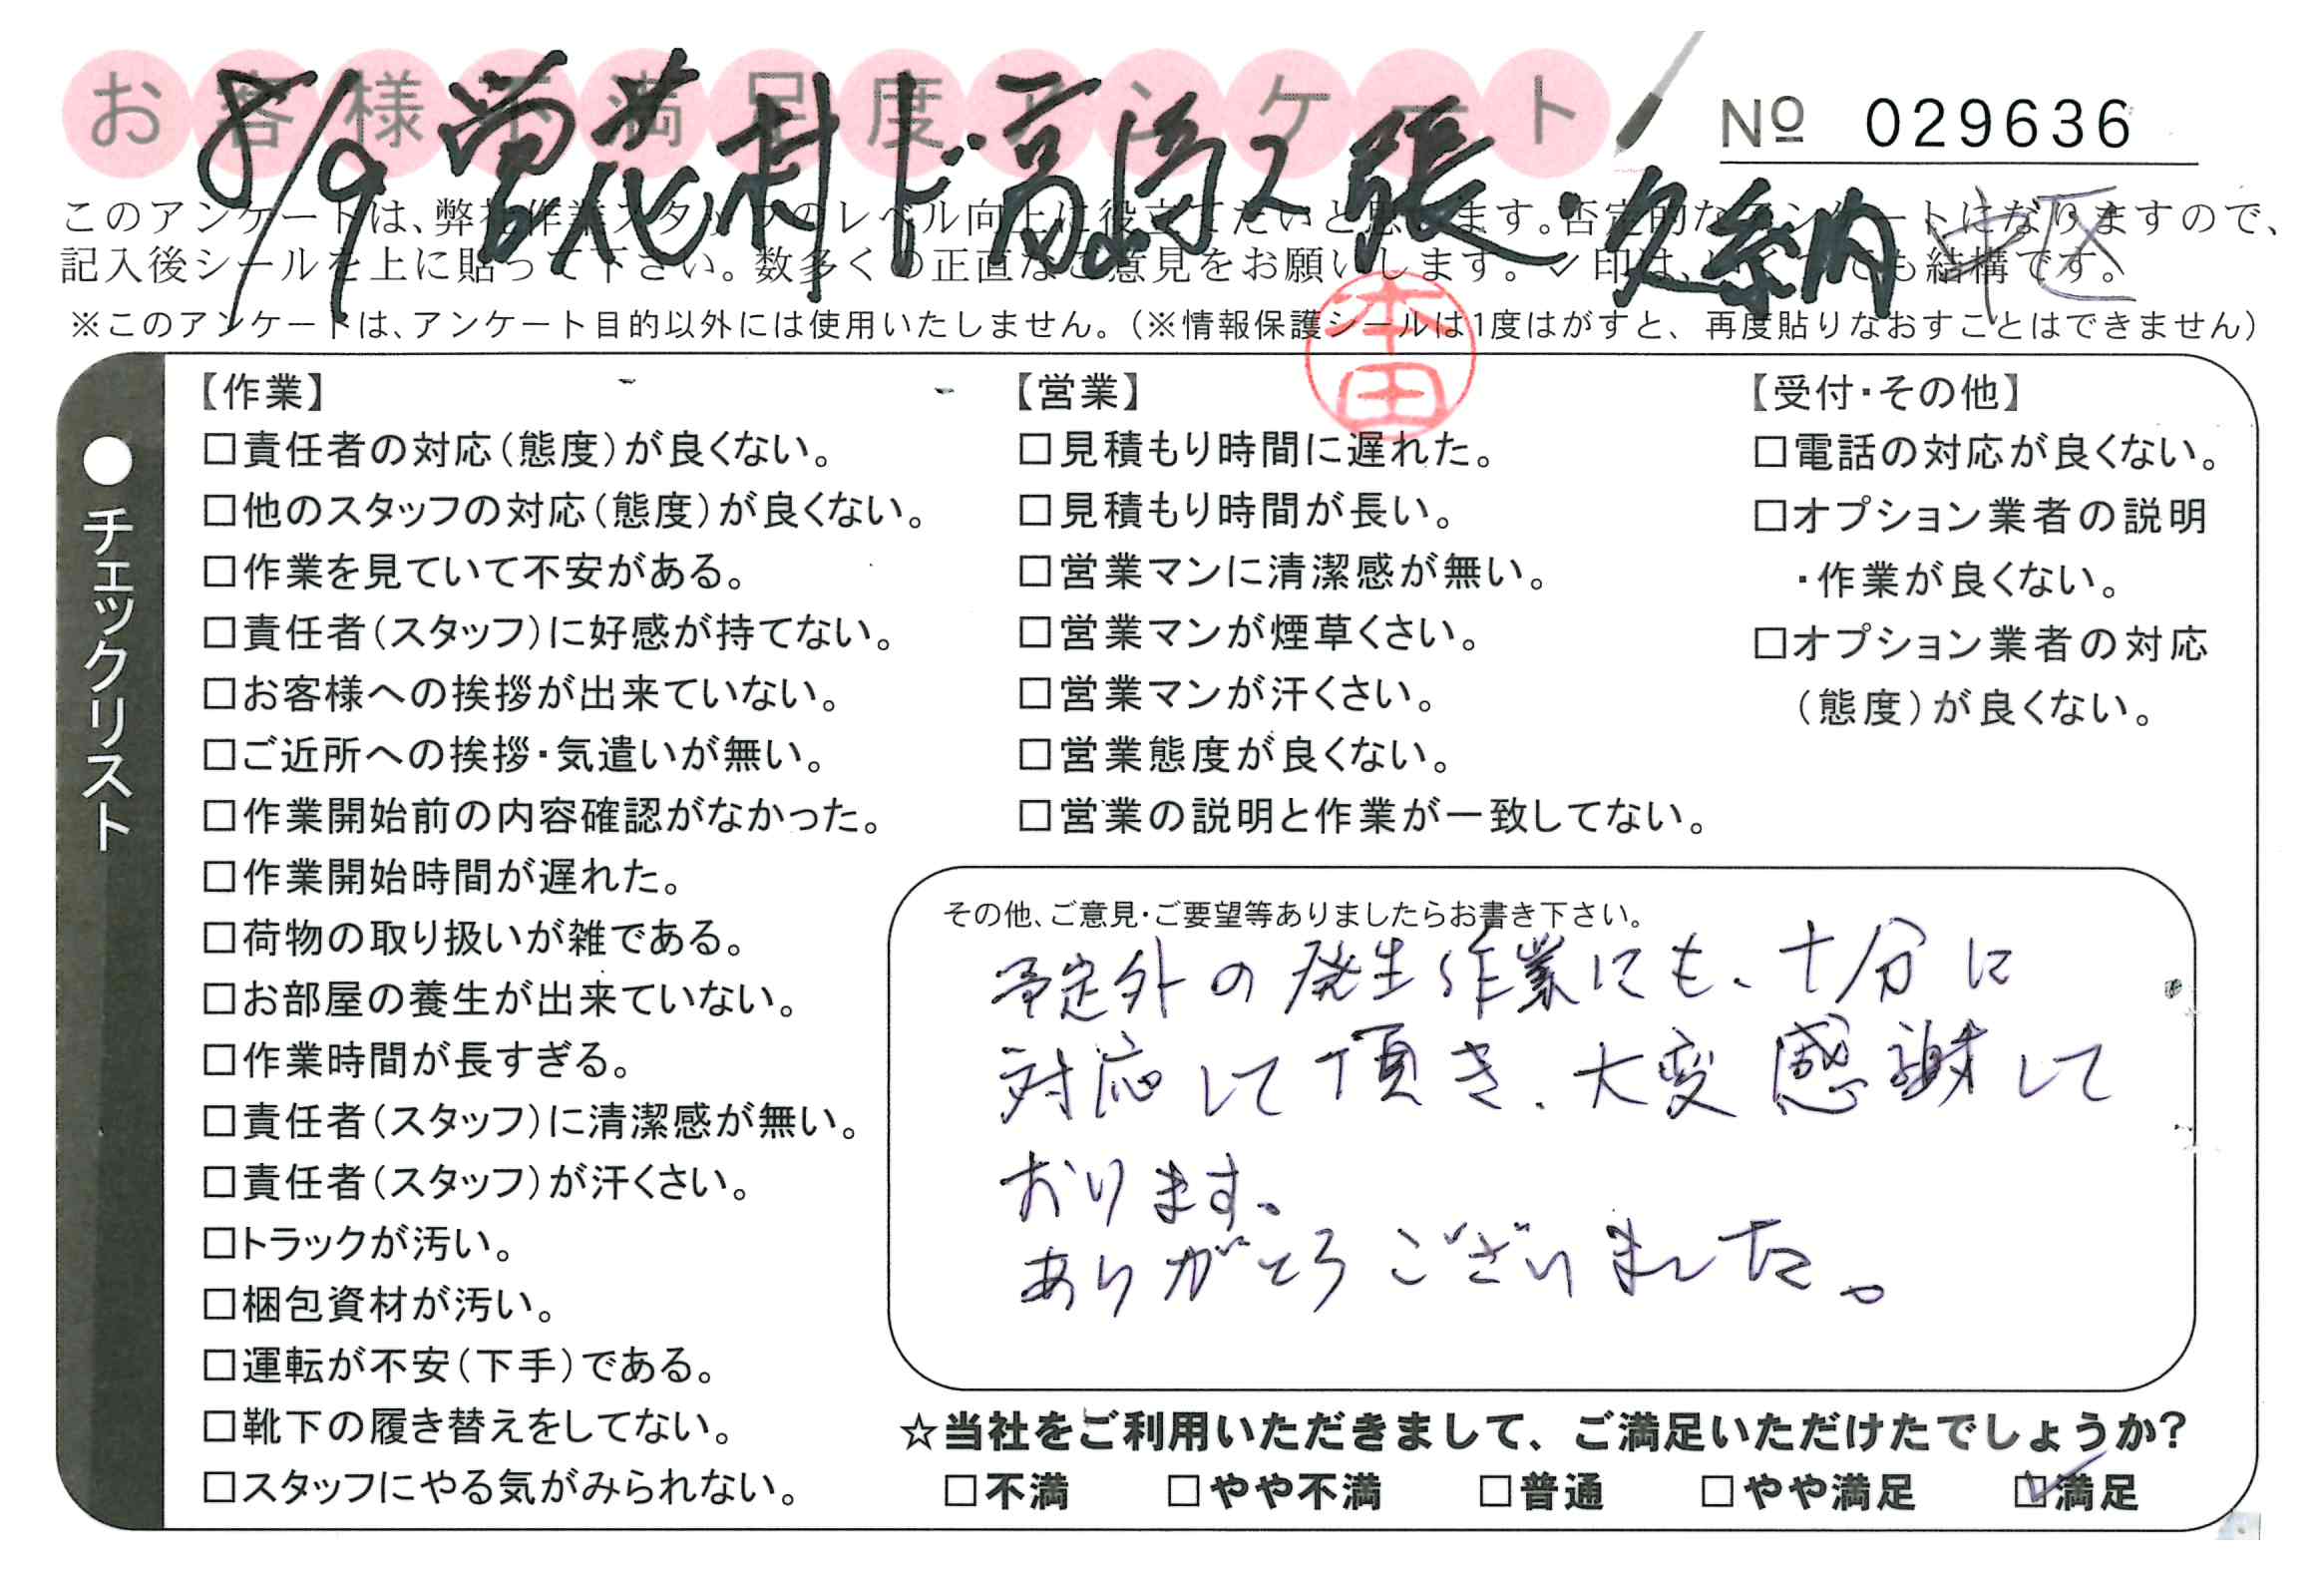 お客様不満足度アンケート
№ 029636
8/9
中区
このアンケートは、弊社作業スタッフのレベル向上に役立てたいと思います。否定的なアンケートになりますので、
記入後シールを上に貼って下さい。数多くの正直なご意見をお願いします。✓印は、なくても結構です。
※このアンケートは、アンケート目的以外には使用いたしません。（※情報保護シールは1度はがすと、再度貼りなおすことはできません）
本田
●チェックリスト
【作業】
□責任者の対応（態度）が良くない。
□他のスタッフの対応（態度）が良くない。
□作業を見ていて不安がある。
□責任者（スタッフ）に好感が持てない。
□お客様への挨拶が出来ていない。
□ご近所への挨拶・気遣いが無い。
□作業開始前の内容確認がなかった。
□作業開始時間が遅れた。
□荷物の取り扱いが雑である。
□お部屋の養生が出来ていない。
□作業時間が長すぎる。
□責任者（スタッフ）に清潔感が無い。
□責任者（スタッフ）が汗くさい。
□トラックが汚い。
□梱包資材が汚い。
□運転が不安（下手）である。
□靴下の履き替えをしてない。
□スタッフにやる気がみられない。
【営業】
□見積もり時間に遅れた。
□見積もり時間が長い。
□営業マンに清潔感が無い。
□営業マンが煙草くさい。
□営業マンが汗くさい。
□営業態度が良くない。
□営業の説明と作業が一致してない。
【受付・その他】
□電話の対応が良くない。
□オプション業者の説明
・作業が良くない。
□オプション業者の対応
（態度）が良くない。
その他、ご意見・ご要望等ありましたらお書き下さい。
予定外の発生作業にも、十分に
対応して頂き、大変感謝して
おります。
ありがとうございました。
☆当社をご利用いただきまして、ご満足いただけたでしょうか?
□不満 □やや不満 □普通 □やや満足 ☑満足